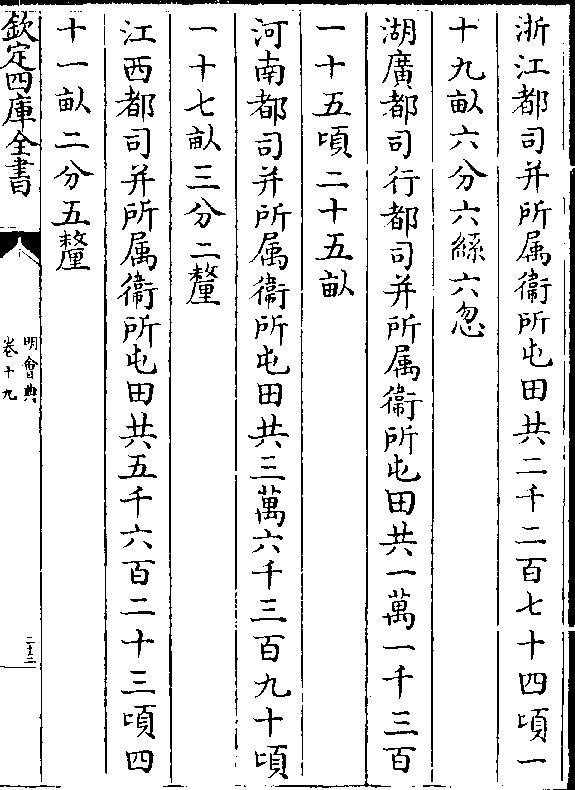 浙江都司并所属衞所屯田共二千二百七十四頃一
十九畝六分六絲六忽
湖廣都司行都司并所属衞所屯田共一萬一千三百
一十五頃二十五畝
河南都司并所属衞所屯田共三萬六千三百九十頃
一十七畝三分二釐
江西都司并所属衞所屯田共五千六百二十三頃四
十一畝二分五釐
欽定四庫全書
明會典
卷十九